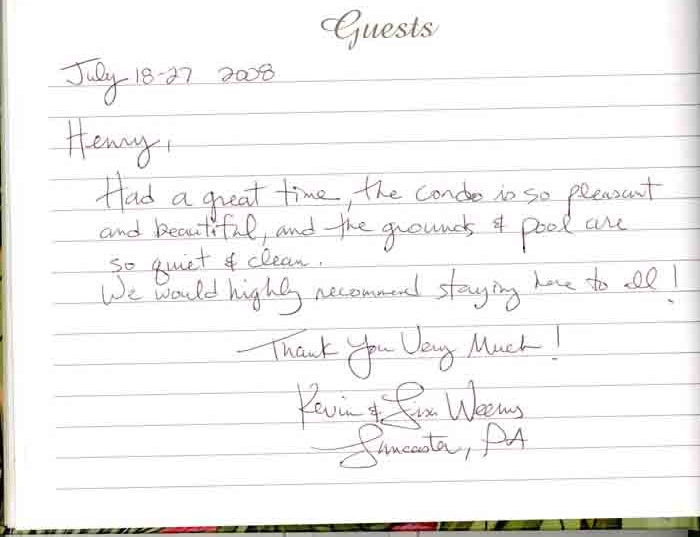 Guests
July 18-27 2008
Henry,
Had a great time, the condo is so pleasant
and beautiful, and the grounds & pool are
so quiet & clean.
We would highly recommend staying here to all!
Thank You Very Much!
Kevin & Lisa Weems
Lancaster, PA